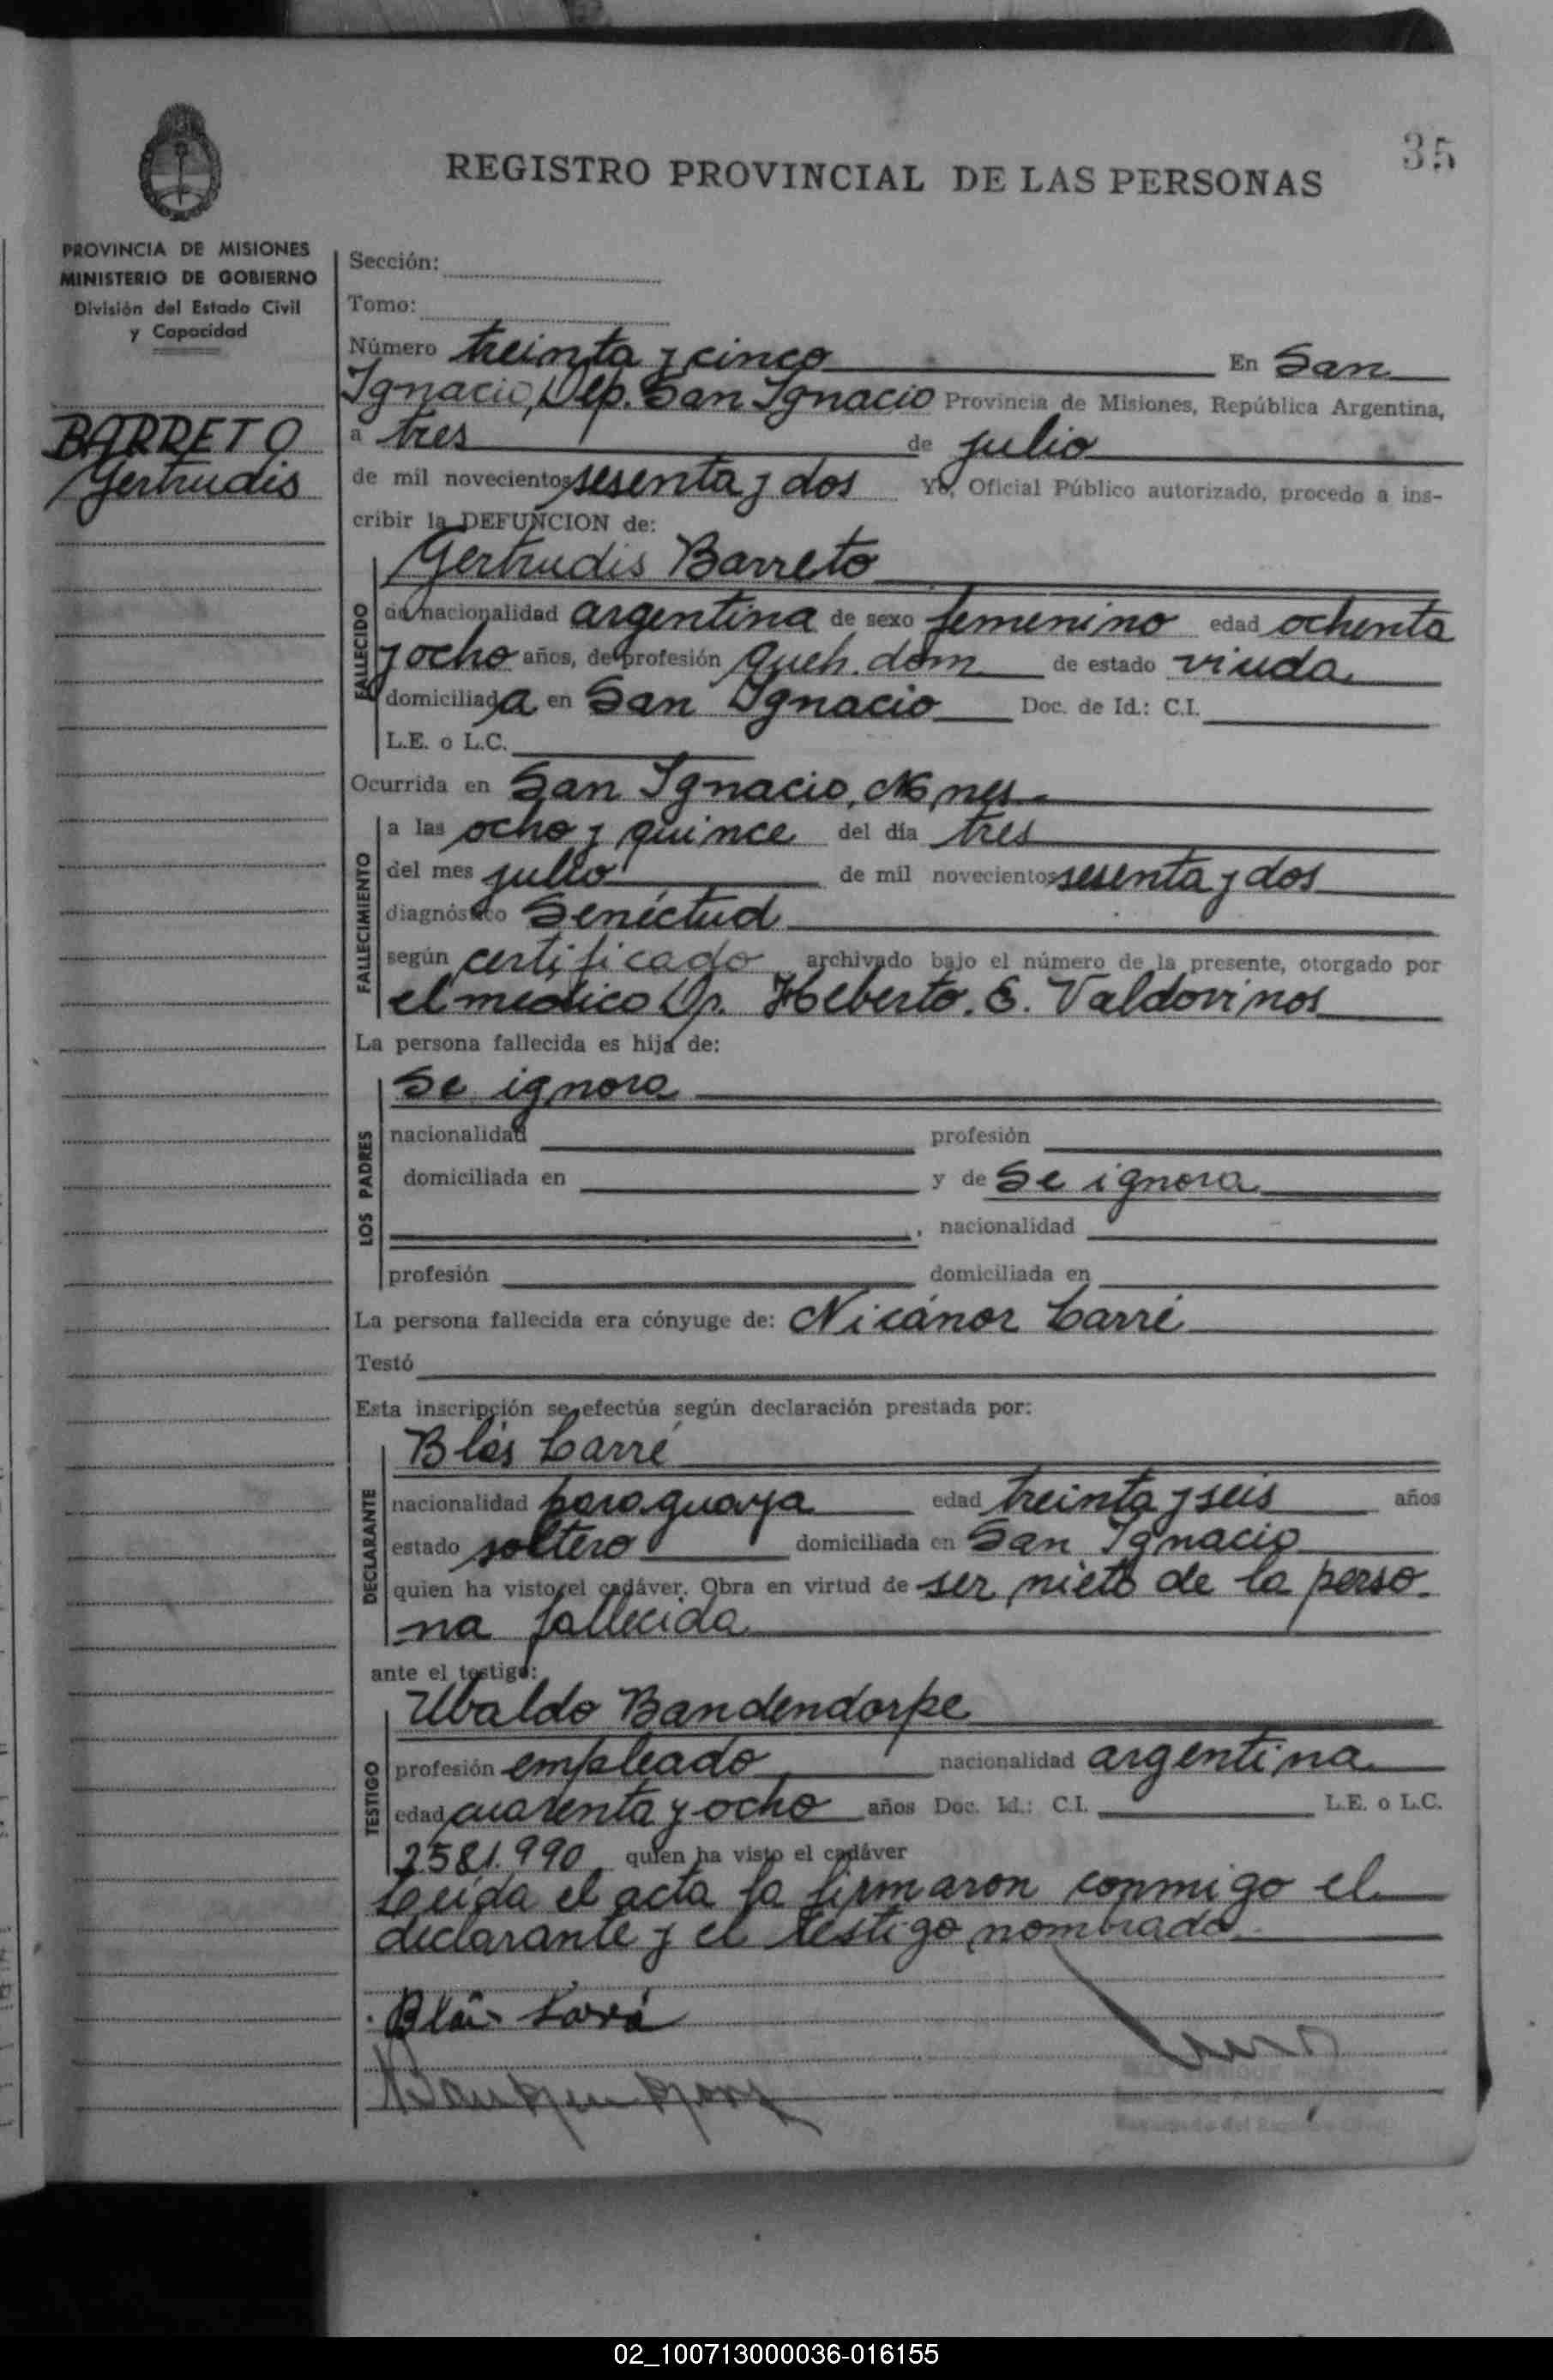 35
REGISTRO PROVINCIAL DE LAS PERSONAS
PROVINCIA DE MISIONES
MINISTERIO DE GOBIERNO
División del Estado Civil
y Capacidad
BARRETO
Gertrudis
Sección:
Tomo:
Número treinta y cinco En San
Ignacio, Dep. San Ignacio Provincia de Misiones, República Argentina,
a tres de julio
de mil novecientos sesenta y dos Yo, Oficial Público autorizado, procedo a ins-
cribir la DEFUNCION de:
FALLECIDO
Gertrudis Barreto
de nacionalidad argentina de sexo femenino edad ochenta
y ocho años, de profesión queh. dom. de estado viuda
domiciliada en San Ignacio Doc. de Id.: C.I.
L.E. o L.C.
Ocurrida en San Ignacio, Mnes.
FALLECIMIENTO
a las ocho y quince del día tres
del mes julio de mil novecientos sesenta y dos
diagnóstico Senectud
según certificado archivado bajo el número de la presente, otorgado por
el médico Dr. Heberto. E. Valdovinos
La persona fallecida es hija de:
LOS PADRES
Se ignora
nacionalidad profesión
domiciliada en y de Se ignora
, nacionalidad
profesión domiciliada en
La persona fallecida era cónyuge de: Nicánor Carré
Testó
Esta inscripción se efectúa según declaración prestada por:
DECLARANTE
Blás Carré
nacionalidad paraguaya edad treinta y seis años
estado soltero domiciliada en San Ignacio
quien ha visto el cadáver. Obra en virtud de ser nieto de la perso-
na fallecida
ante el testigo:
TESTIGO
Ubaldo Bandendorpe
profesión empleado nacionalidad argentina
edad cuarenta y ocho años Doc. Id.: C.I. L.E. o L.C.
2581.990 quien ha visto el cadáver
Leída el acta la firmaron conmigo el
declarante y el testigo nombrado.
Blás
02_100713000036-016155